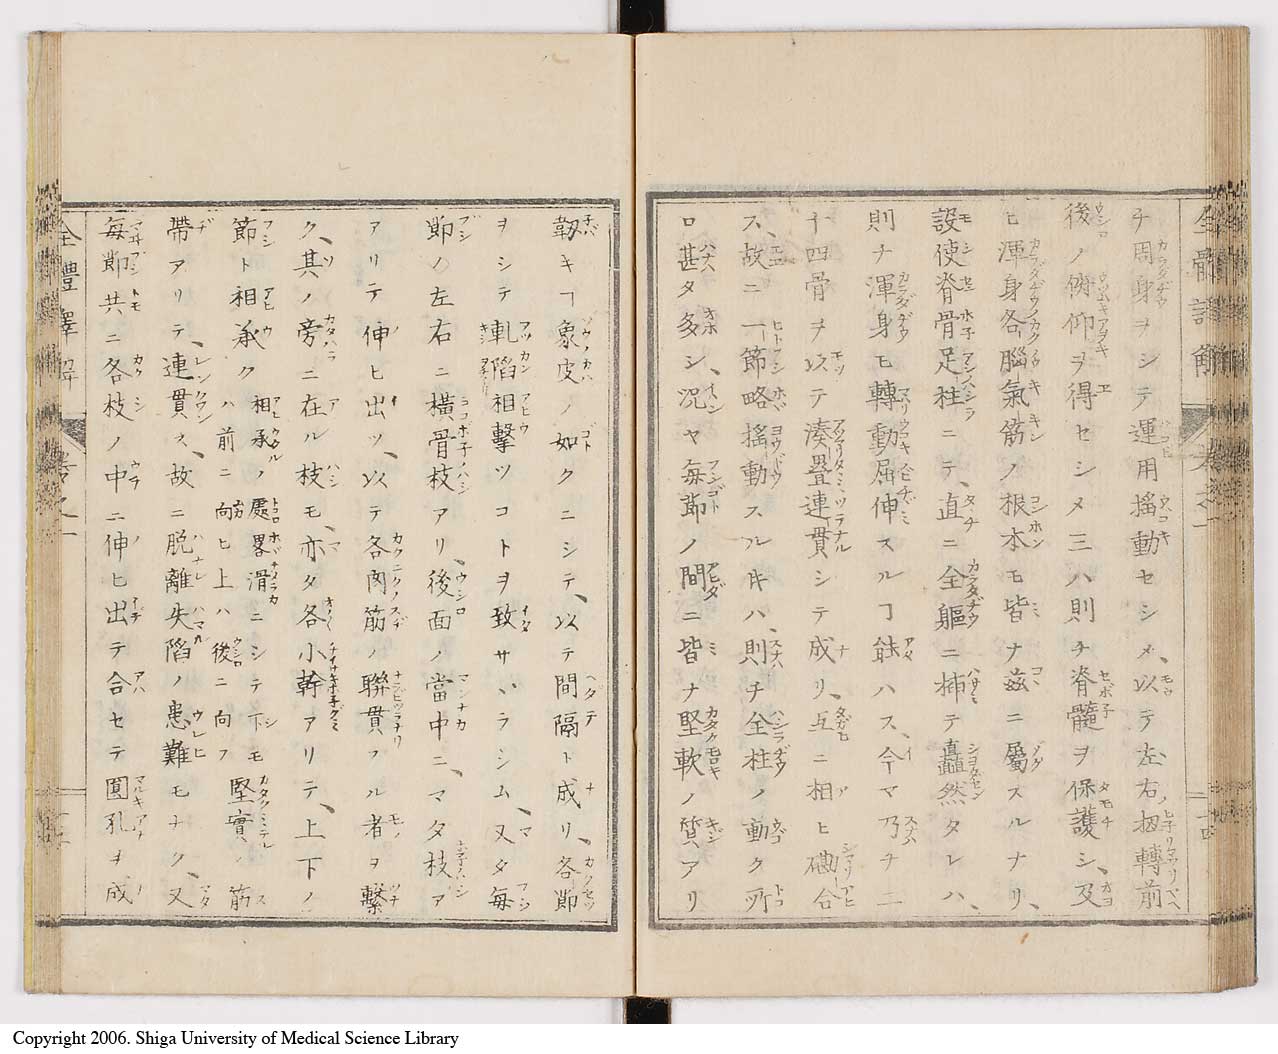 チ周身ヲシテ運用搖動セシメ、以テ左右扭轉前
後ノ俯仰ヲ得セシメ三ハ則チ脊髓ヲ保護シ、及
ヒ渾身各腦氣筋ノ根本モ皆ナ茲ニ屬スルナリ、
設使脊骨足柱ニテ、直ニ全軀ニ揷テ矗然タレハ、
則ナ渾身モ轉動屈伸スルヿ能ハス、今マ乃チ二
十四骨ヲ以テ湊疊連貫シテ成リ、互ニ相ヒ磡合
ス、故ニ一節略搖動スルキハ、則チ全柱ノ動ク所
ロ甚タ多シ、況ヤ毎節ノ間ニ皆ナ堅軟ノ質アリ
韌キヿ象皮ノ如クニシテ、以テ間隔ト成リ、各節
ヲシテ軋陷相擊ツコトヲ致サヽラシム、又タ毎
節ノ左右ニ橫骨枝アリ、後面ノ當中ニ、マタ枝ア
アリテ伸ヒ出ツ、以テ各肉筋ノ聯貫スル者ヲ繫
ク、其ノ旁ニ在ル枝モ、亦タ各小幹アリテ、上下ノ
節ト相承ク 相承ノ處畧滑ニシテ下モ
ハ前ニ向ヒ上ハ後ニ向フ 堅實ノ筋
帶アリテ、連貫ス、故ニ脱離失陷ノ患難モナク、又
毎節共ニ各枝ノ中ニ伸ヒ出テ合セテ圓孔ヲ成
全體譯解 卷之一
Copyright 2006. Shiga University of Medical Science Library